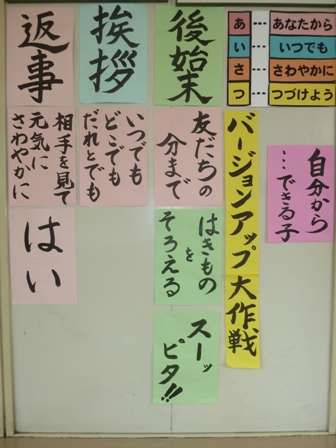 あ…あなたから
い…いつでも
さ…さわやかに
つ…つづけよう
自分から
…できる子
バージョンアップ大作戦
後始末
友だちの
分まで
はきもの
を
そろえる
スーッ
ピタ!!
挨拶
いつでも
どこでも
だれとでも
返事
相手を見て
元気に
さわやかに
はい